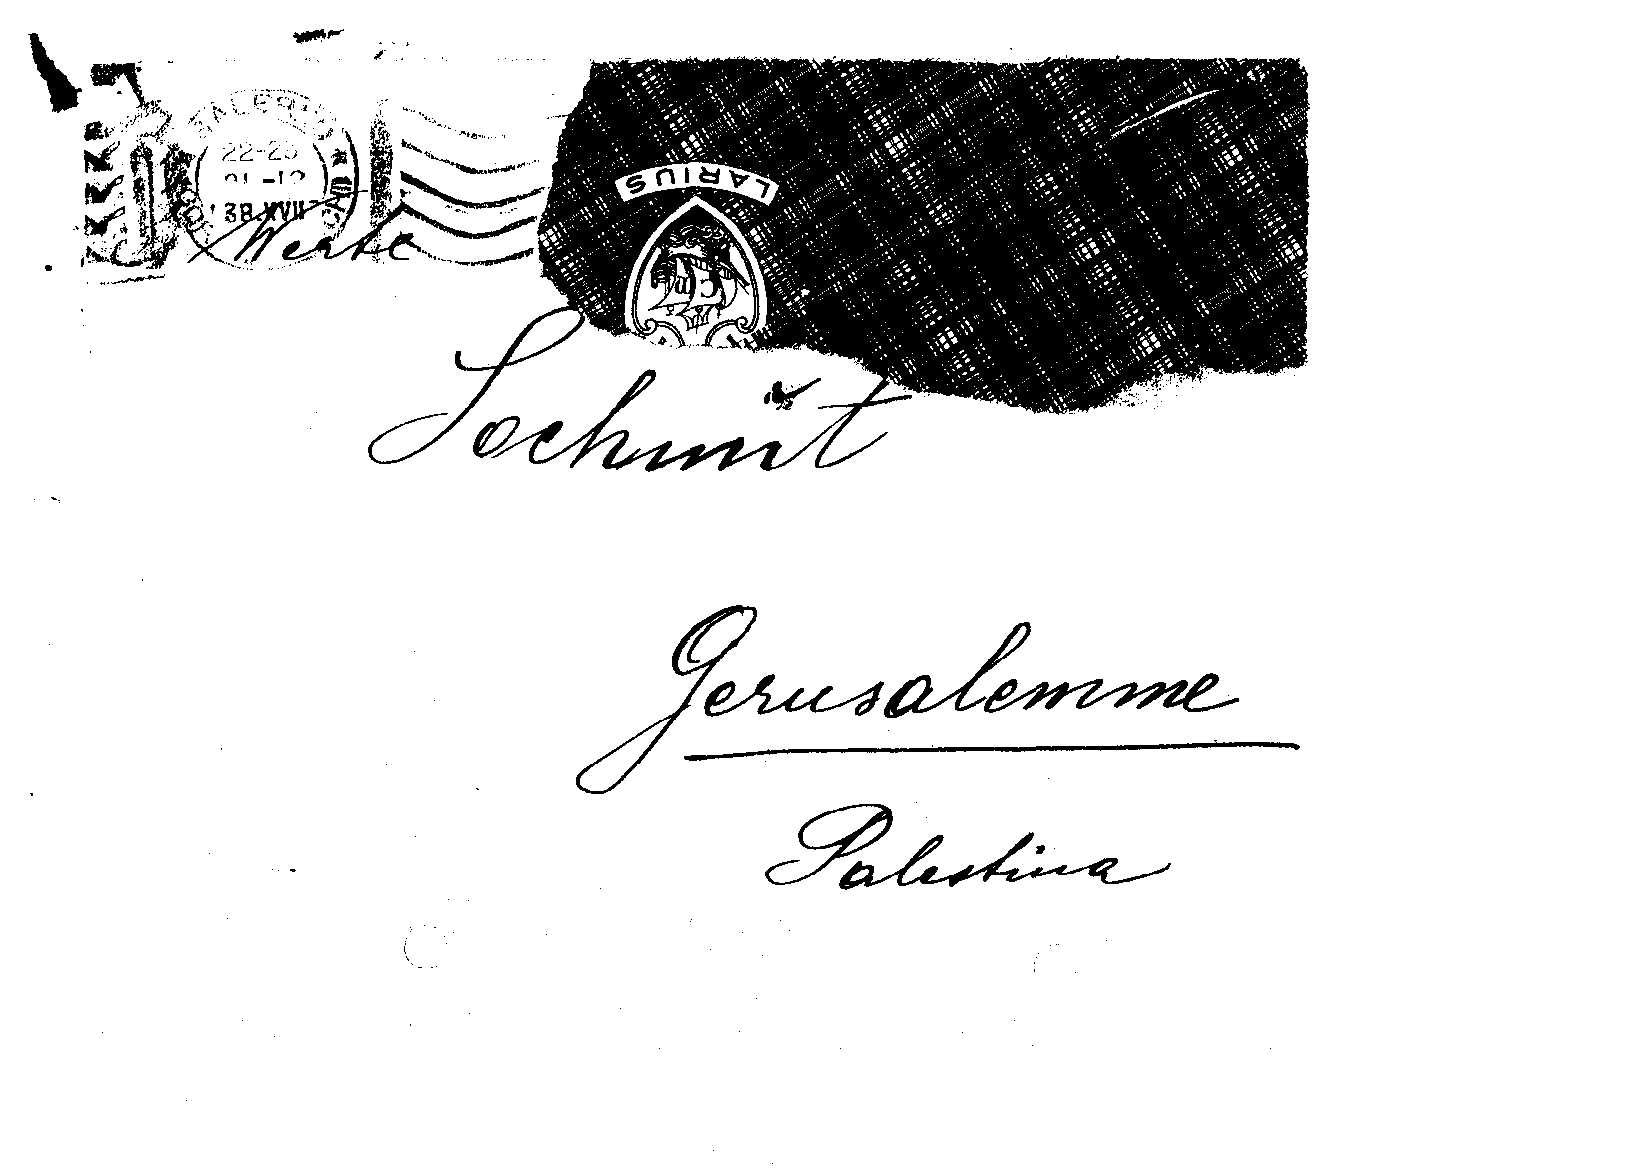 PALERMO
22-23
'38.XVII
Werte
LARIUS
Sochnut
Gerusalemme
Palestina